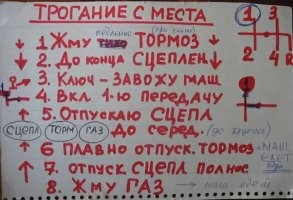 ТРОГАНИЕ С МЕСТА
1 3
2 4 R
медленно
1 Жму ТОРМОЗ
2. До конца СЦЕПЛЕН.
3. Ключ - ЗАВОЖУ МАШ
4. Вкл. 1-ю передачу
5. Отпускаю СЦЕПЛ
СЦЕПЛ ТОРМ ГАЗ До серед.
6 ПЛАВНО отпуск. ТОРМОЗ - МАШ. ЕДЕТ
7. отпуск СЦЕПЛ полнос.
8. Жму ГАЗ → маш едет